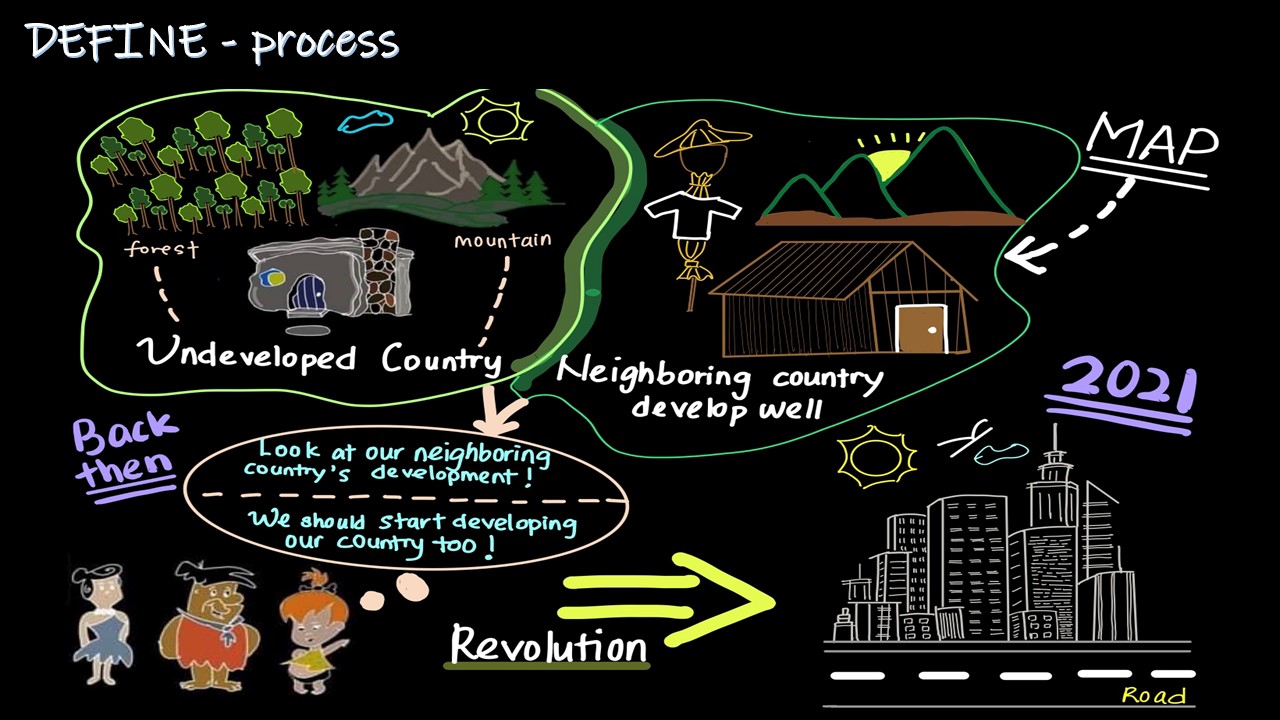 DEFINE - process
MAP
forest
mountain
Undeveloped Country
Neighboring country
develop well
2021
Back
then
Look at our neighboring
country's development!
We should start developing
our country too!
Revolution
Road